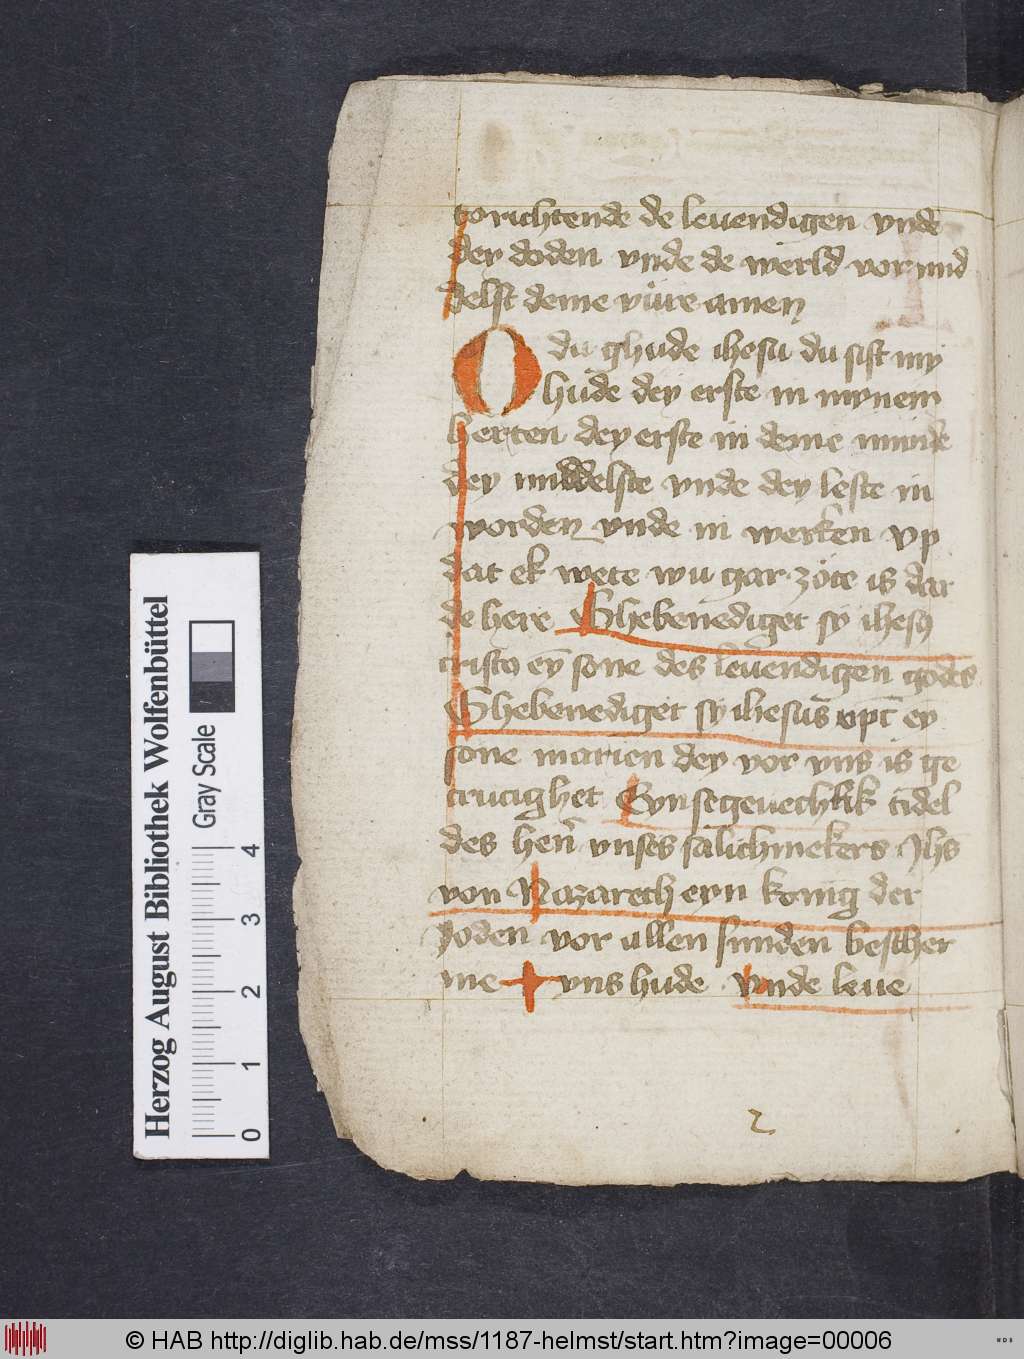 torichtende de leuendigen vnde
dey doden vnde de werld vor mid
delst deme vu̇re amen
O du ghude ihesu du sist my
hude dey erste in mynem
herten dey erste in deme munde
dey middelste vnde dey leste in
worden vnde in werken vp
dat ek wete wu gar zote is dar
de here Ghebenediget sy ihesꝯ
cristꝯ eȳ sone des leuendigen godes
Ghebenediget sy ihesus xpc̄ ey
sone marien dey vor vns is ge
crucighet Eyn segeuechlik titel
des hen̄ vnses salichmekers Jhs
von Nazareth eyn konig der
yoden vor allen sunden bescher
me + vns hude vnde leue
2
Herzog August Bibliothek Wolfenbüttel
Gray Scale
0 1 2 3 4
© HAB http://diglib.hab.de/mss/1187-helmst/start.htm?image=00006
WDB